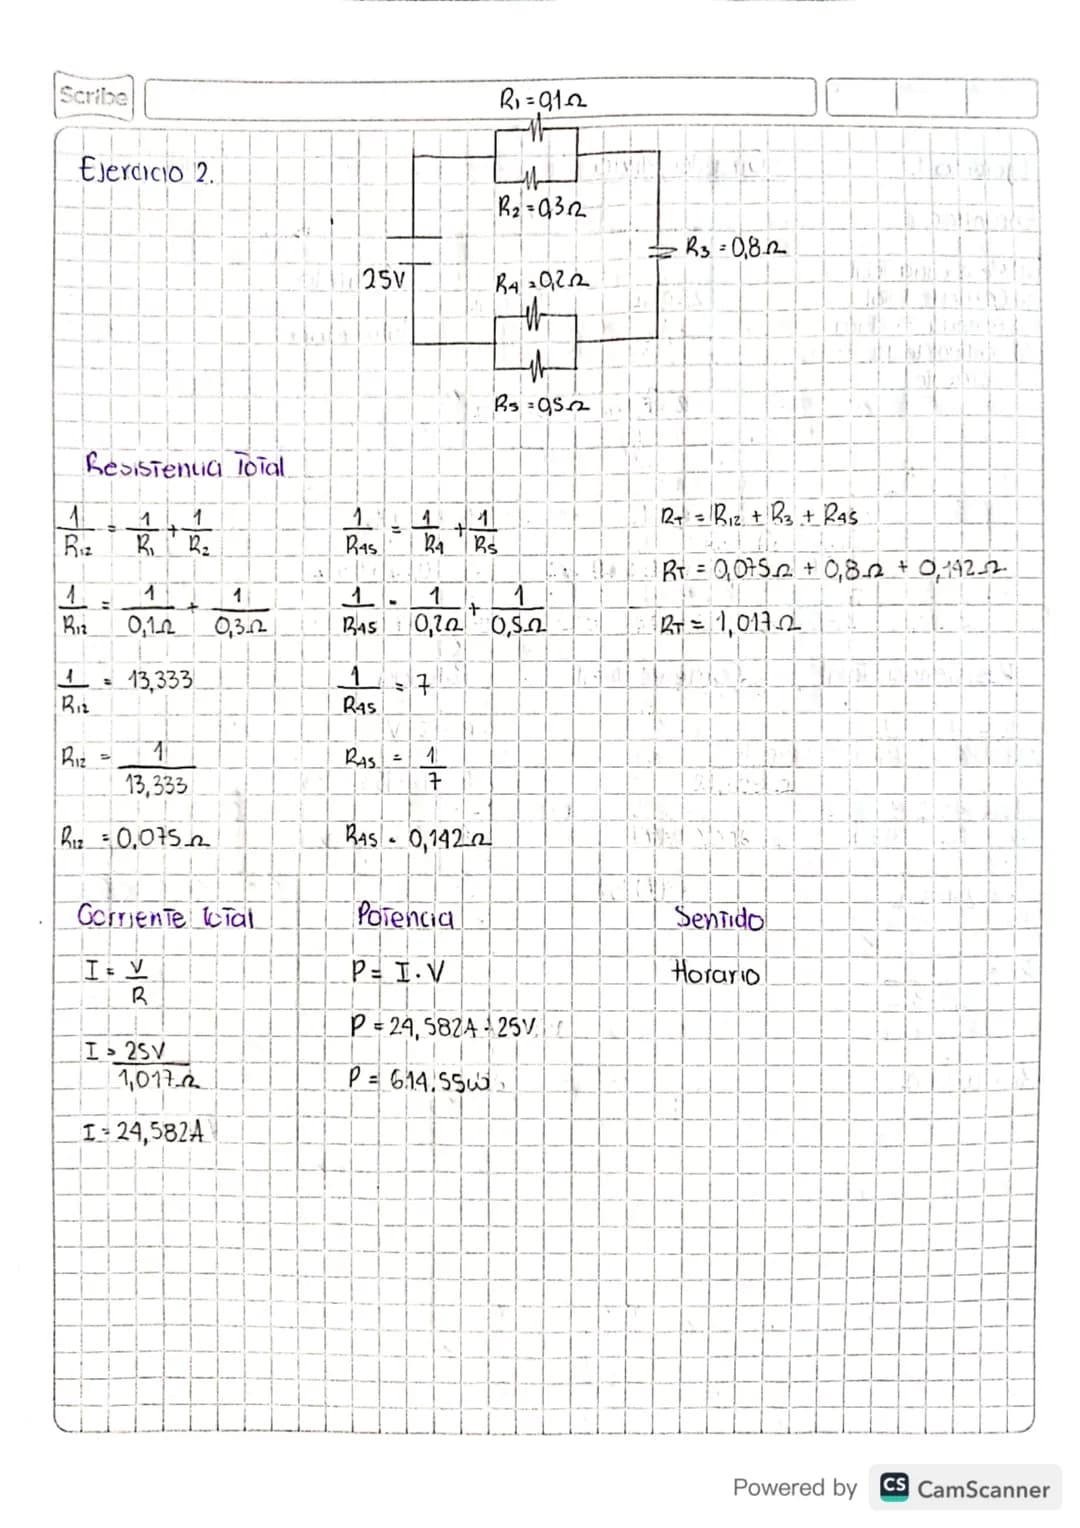 Scribe
R₁ = 0,1Ω
Ejercicio 2.
R₂ = 0,3Ω
R₃ = 0,8Ω
25V
R₄ = 0,2Ω
R₅ = 0,5Ω
Resistencia Total
1/R₁₂ = 1/R₁ + 1/R₂
1/R₁₂ = 1/0,1Ω + 1/0,3Ω
1/R₁₂ = 13,333
R₁₂ = 1/13,333
R₁₂ = 0,075Ω
1/R₄₅ = 1/R₄ + 1/R₅
1/R₄₅ = 1/0,2Ω + 1/0,5Ω
1/R₄₅ = 7
R₄₅ = 1/7
R₄₅ = 0,142Ω
RT = R₁₂ + R₃ + R₄₅
RT = 0,075Ω + 0,8Ω + 0,142Ω
RT = 1,017Ω
Corriente total
I = V/R
I = 25V/1,017Ω
I = 24,582A
Potencia
P = I · V
P = 24,582A · 25V
P = 614,55W
Sentido
Horario
Powered by CS CamScanner